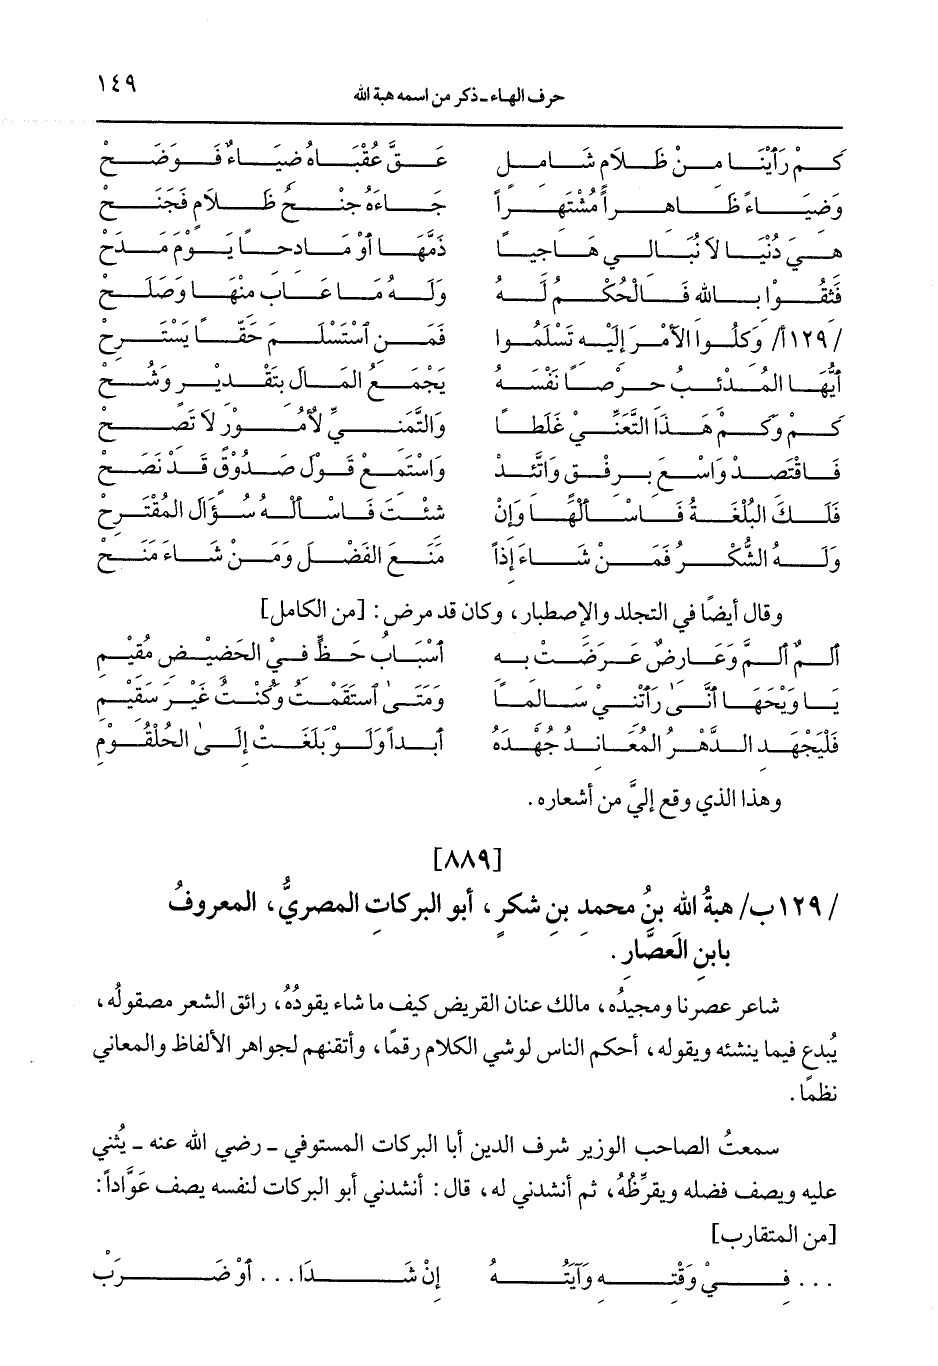 حرف الهاء - ذكر من اسمه هبة الله ١٤٩
كَمْ رَأَيْنَا مِنْ ظَلَامٍ شَامِلٍ عَقَّ عُقْبَاهُ ضِيَاءٌ فَوَضَحْ
وَضِيَاءً ظَاهِراً مُشْتَهِراً جَاءَهُ جِنْحُ ظَلَامٍ فَجَنَحْ
هِيَ دُنْيَا لَا نُبَالِي هَاجِياً ذَمَّهَا أَوْ مَادِحاً يَوْمَ مَدَحْ
فَثِقُوْا بِاللهِ فَالْحُكْمُ لَهُ وَلَهُ مَا عَابَ مِنْهَا وَصَلَحْ
/١٢٩أ/ وَكِلُوا الأَمْرَ إِلَيْهِ تَسْلَمُوا فَمَنِ اسْتَسْلَمَ حَقّاً يَسْتَرِحْ
أَيُّهَا المُدْئِبُ حِرْصاً نَفْسَهُ يَجْمَعُ المَالَ بِتَقْدِيْرٍ وَشُحْ
كَمْ وَكَمْ هَذَا التَّعَنِّيْ غَلَطاً وَالتَّمَنِّيْ لأُمُوْرٍ لَا تَصُحْ
فَاقْتَصِدْ وَاسْعَ بِرِفْقٍ وَاتَّئِدْ وَاسْتَمِعْ قَوْلَ صَدُوْقٍ قَدْ نَصَحْ
فَلَكَ البُلْغَةُ فَاسْأَلْهَا وَإِنْ شِئْتَ فَاسْأَلْهُ سُؤَالَ المُقْتَرِحْ
وَلَهُ الشُّكْرُ فَمَنْ شَاءَ إِذاً مَنَعَ الفَضْلَ وَمَنْ شَاءَ مَنَحْ
وقال أيضًا في التجلد والإصطبار، وكان قد مرض: [من الكامل]
أَلَمٌ أَلَمَّ وَعَارِضٌ عَرَضَتْ بِهِ أَسْبَابُ حَظٍّ فِيْ الحَضِيْضِ مُقِيْمِ
يَا وَيْحَهَا أَنَّىٰ رَأَتْنِيْ سَالِماً وَمَتَىٰ اسْتَقَمْتُ وَكُنْتُ غَيْرَ سَقِيْمِ
فَلْيَجْهَدِ الدَّهْرُ المُعَانِدُ جُهْدَهُ أَبَداً وَلَوْ بَلَغَتْ إِلَىٰ الحُلْقُوْمِ
وهذا الذي وقع إليَّ من أشعاره.
[٨٨٩]
/١٢٩ب/ هبةُ اللهِ بنُ محمدِ بنِ شكرٍ، أبو البركاتِ المصريُّ، المعروفُ
بابنِ العَصَّارِ.
شاعر عصرنا ومجيدُه، مالك عنان القريض كيف ما شاء يقودُهُ، رائق الشعر مصقولُه،
يُبدع فيما ينشئه ويقوله، أحكم الناس لوشي الكلام رقمًا، وأتقنهم لجواهر الألفاظ والمعاني
نظمًا.
سمعتُ الصاحب الوزير شرف الدين أبا البركات المستوفي - رضي الله عنه - يُثني
عليه ويصف فضله ويقرِّظُهُ، ثم أنشدني له، قال: أنشدني أبو البركات لنفسه يصف عَوَّاداً:
[من المتقارب]
... فِيْ وَقْتِهِ وَآيَتُهُ إِنْ شَدَا... أَوْ ضَرَبْ